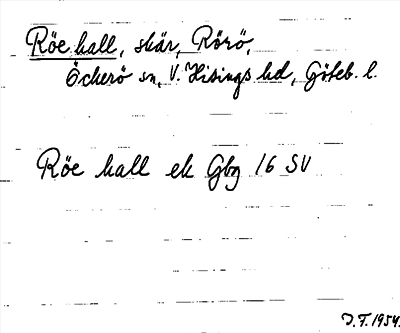 Röe hall, skär, Rörö,
Öckerö sn, V. Hisings hd, Göteb. l.
Röe hall ek Gbg 16 SV
J.F. 1954.